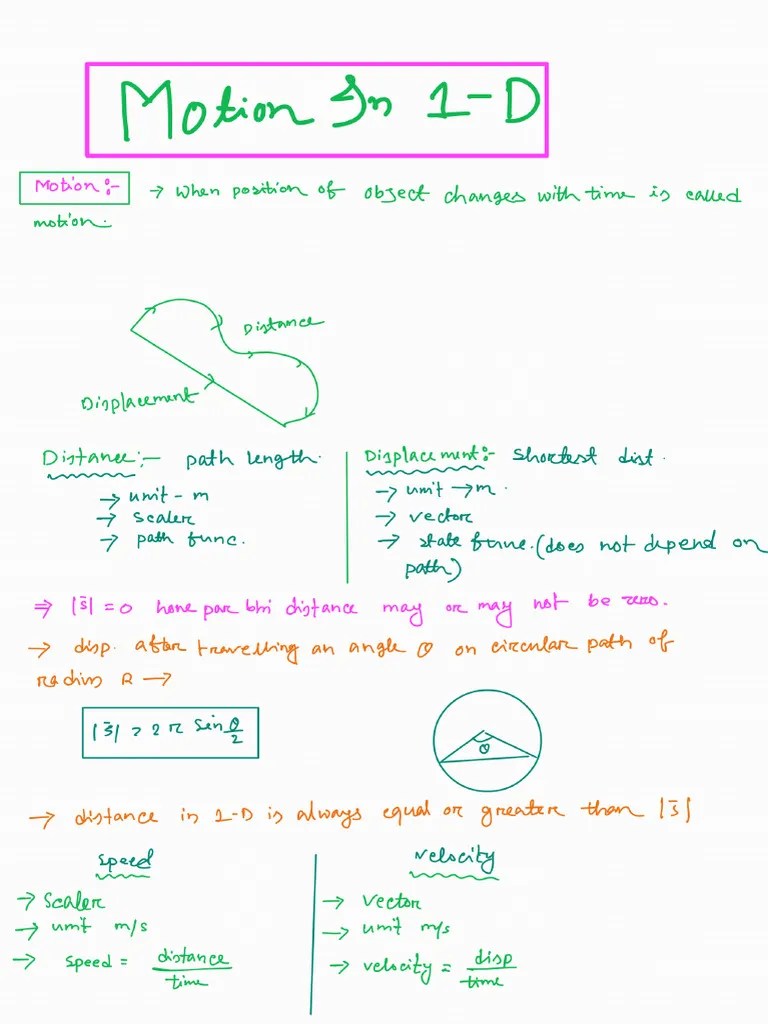 Motion In 1-D
Motion:- → When position of object changes with time is called
motion.
Distance
Displacement
Distance:- path length.
→ unit - m
→ scaler
→ path func.
Displacement:- Shortest dist.
→ unit → m.
→ vector
→ state func. (does not depend on
path)
⇒ |s̄| = 0 hone par bhi distance may or may not be zero.
→ disp. after travelling an angle θ on circular path of
radius R →
|s̄| = 2 R sin θ/2
θ
→ distance in 1-D is always equal or greater than |s̄|
speed
→ Scaler
→ unit m/s
→ speed = distance/time
velocity
→ Vector
→ unit m/s
→ velocity = disp/time